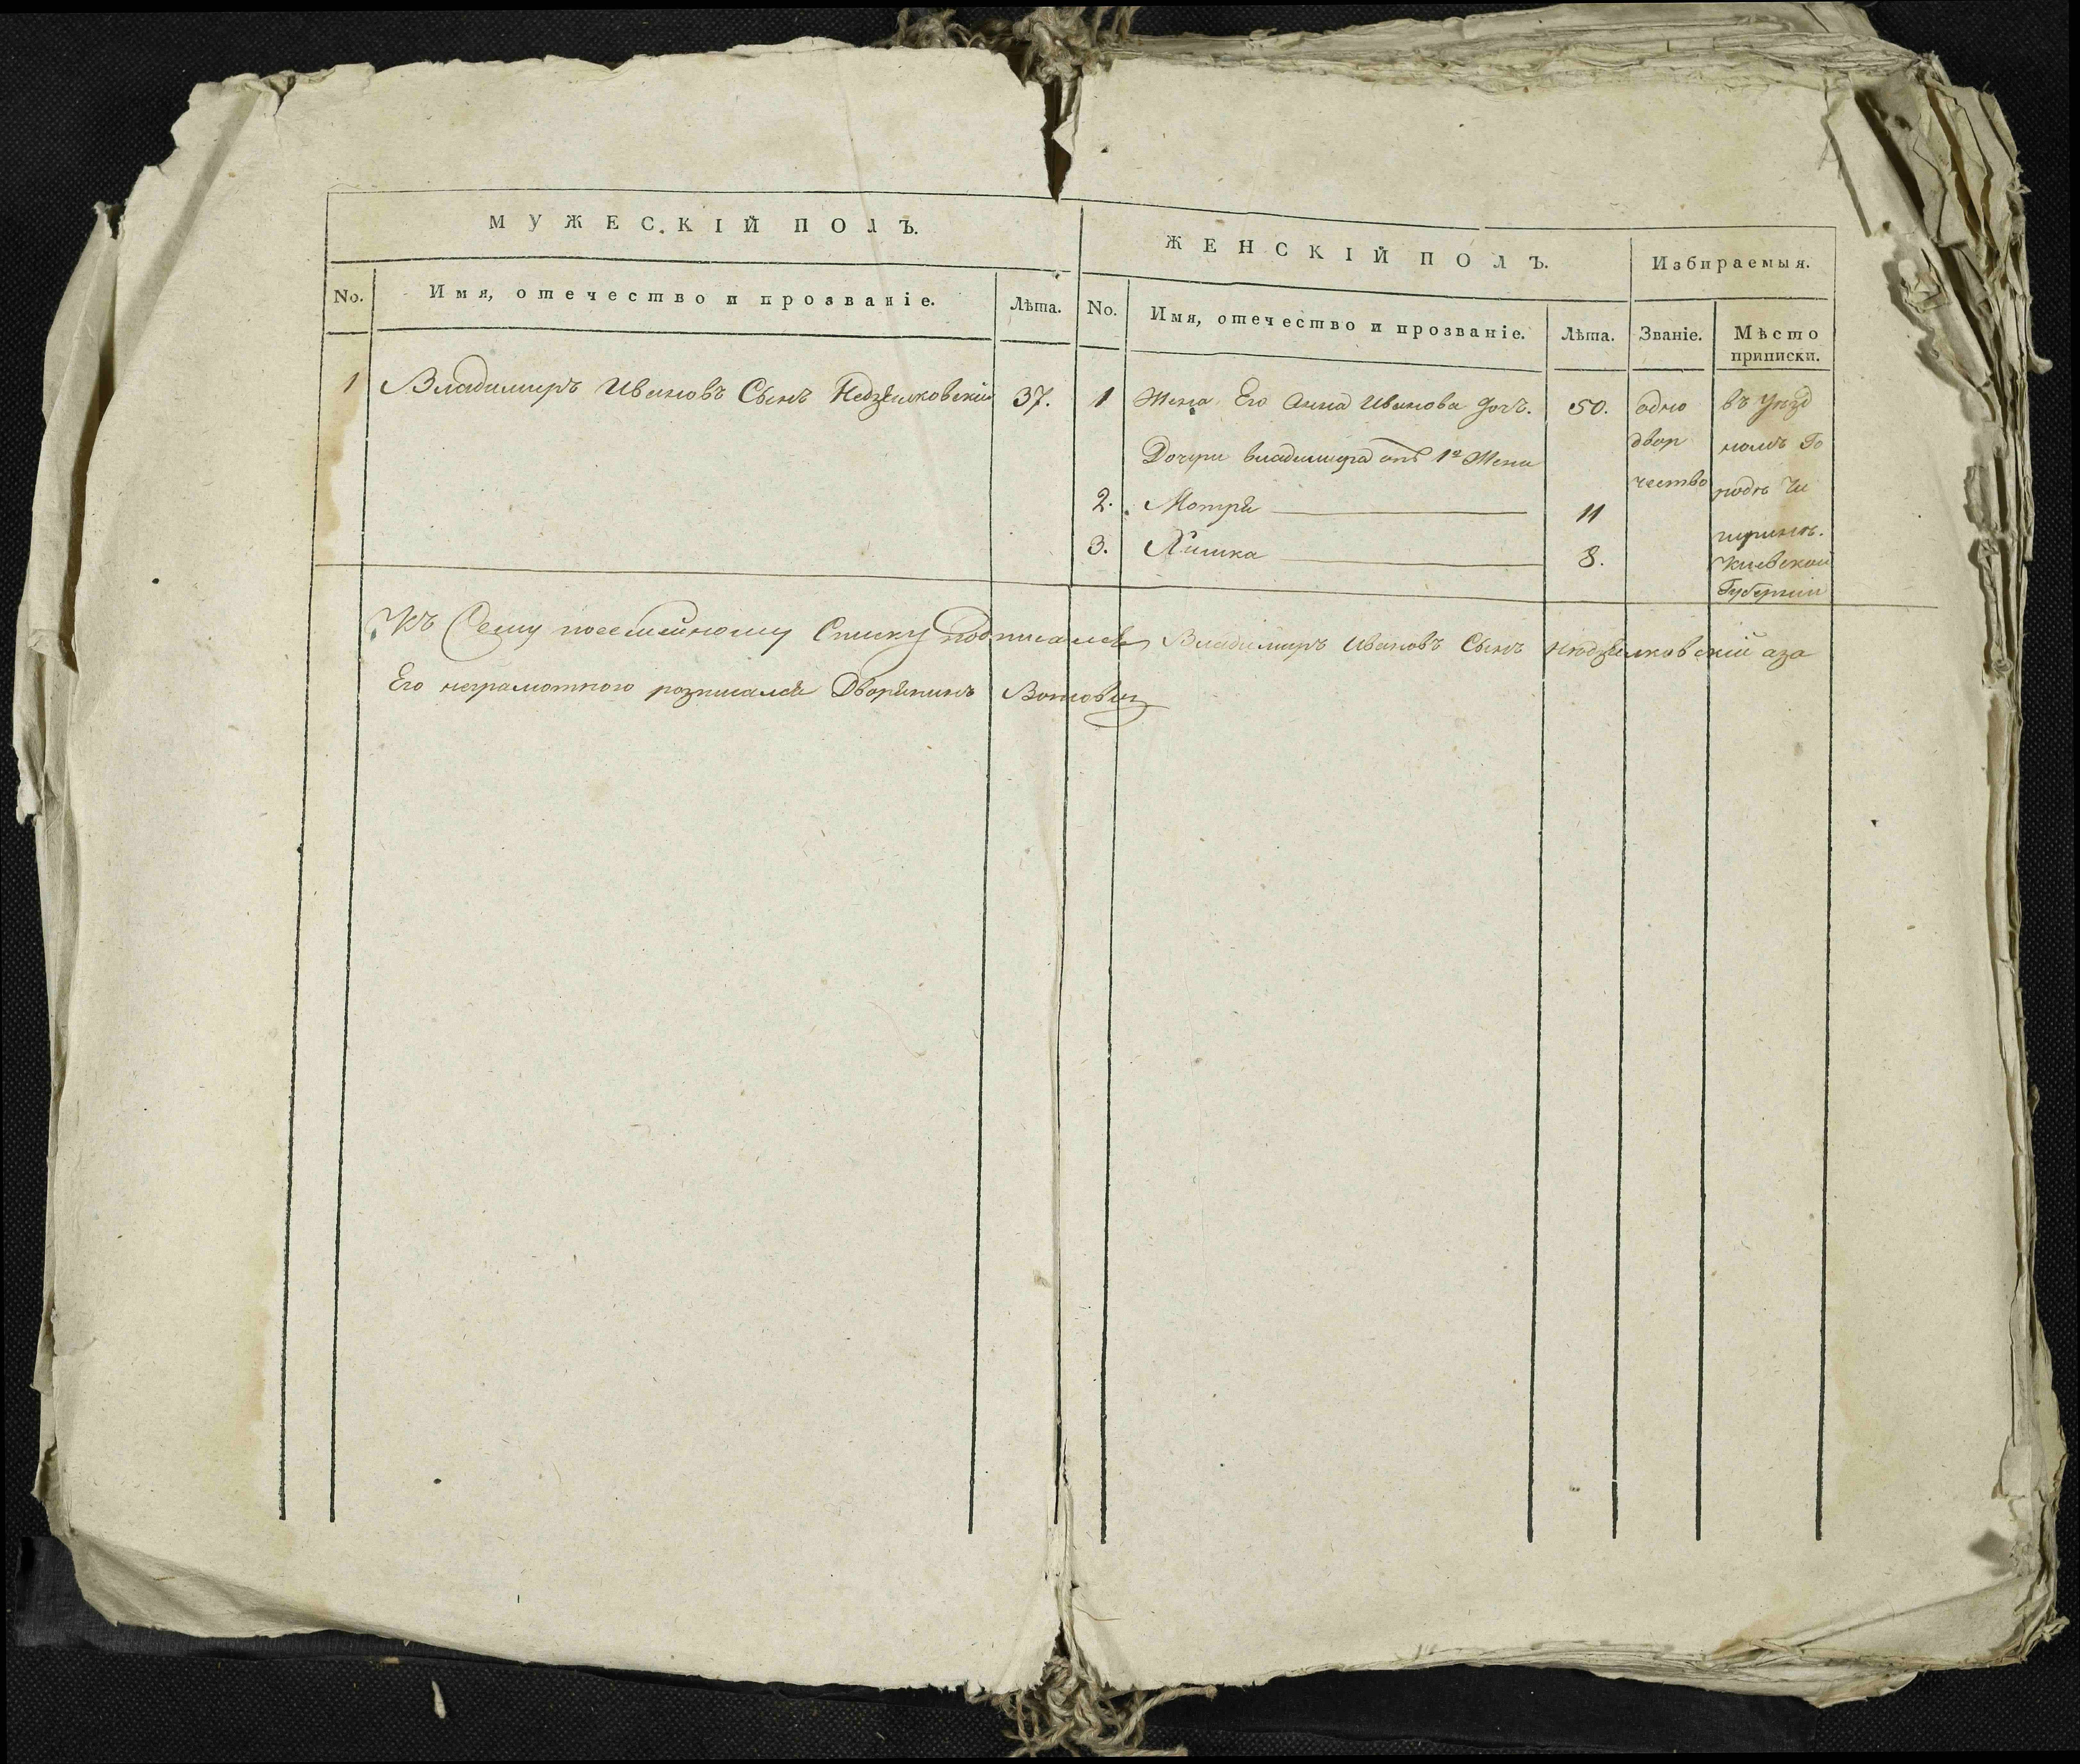 МУЖЕСКІЙ ПОЛЪ.
ЖЕНСКІЙ ПОЛЪ.
Избираемыя.
No.
Имя, отечество и прозваніе.
Лѣта.
No.
Имя, отечество и прозваніе.
Лѣта.
Званіе.
Мѣсто
приписки.
1 Владимиръ Ивановъ Сынъ Недзелковскій 37.
1 Жена Его Анна Иванова дочъ. 50.
Дочери владимира отъ 1й Жены
2. Мотря 11
3. Химка 8.
одно
двор
чество
въ уезд
номъ Го
роде Чи
гирине.
Киевской
Губернии
Къ Сему посемейному Списку подписался Владимиръ Ивановъ Сынъ Недзелковский аза
Его неграмотного розписался Дворянинъ